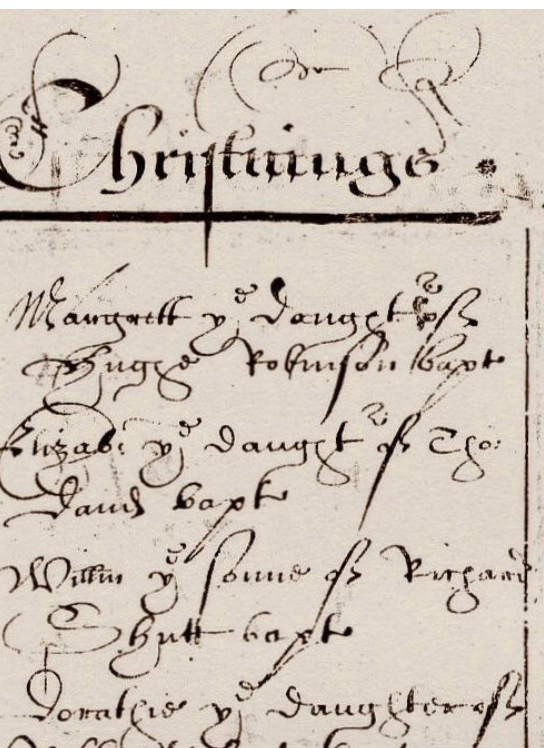 Christnings
Margrett yᵉ daughtʳ of
Hughe Robinson bapt
Elizab: yᵉ daughtʳ of Tho:
bapt
Willm yᵉ sonne of Richard
Shutt bapt
Dorathie yᵉ daughter of